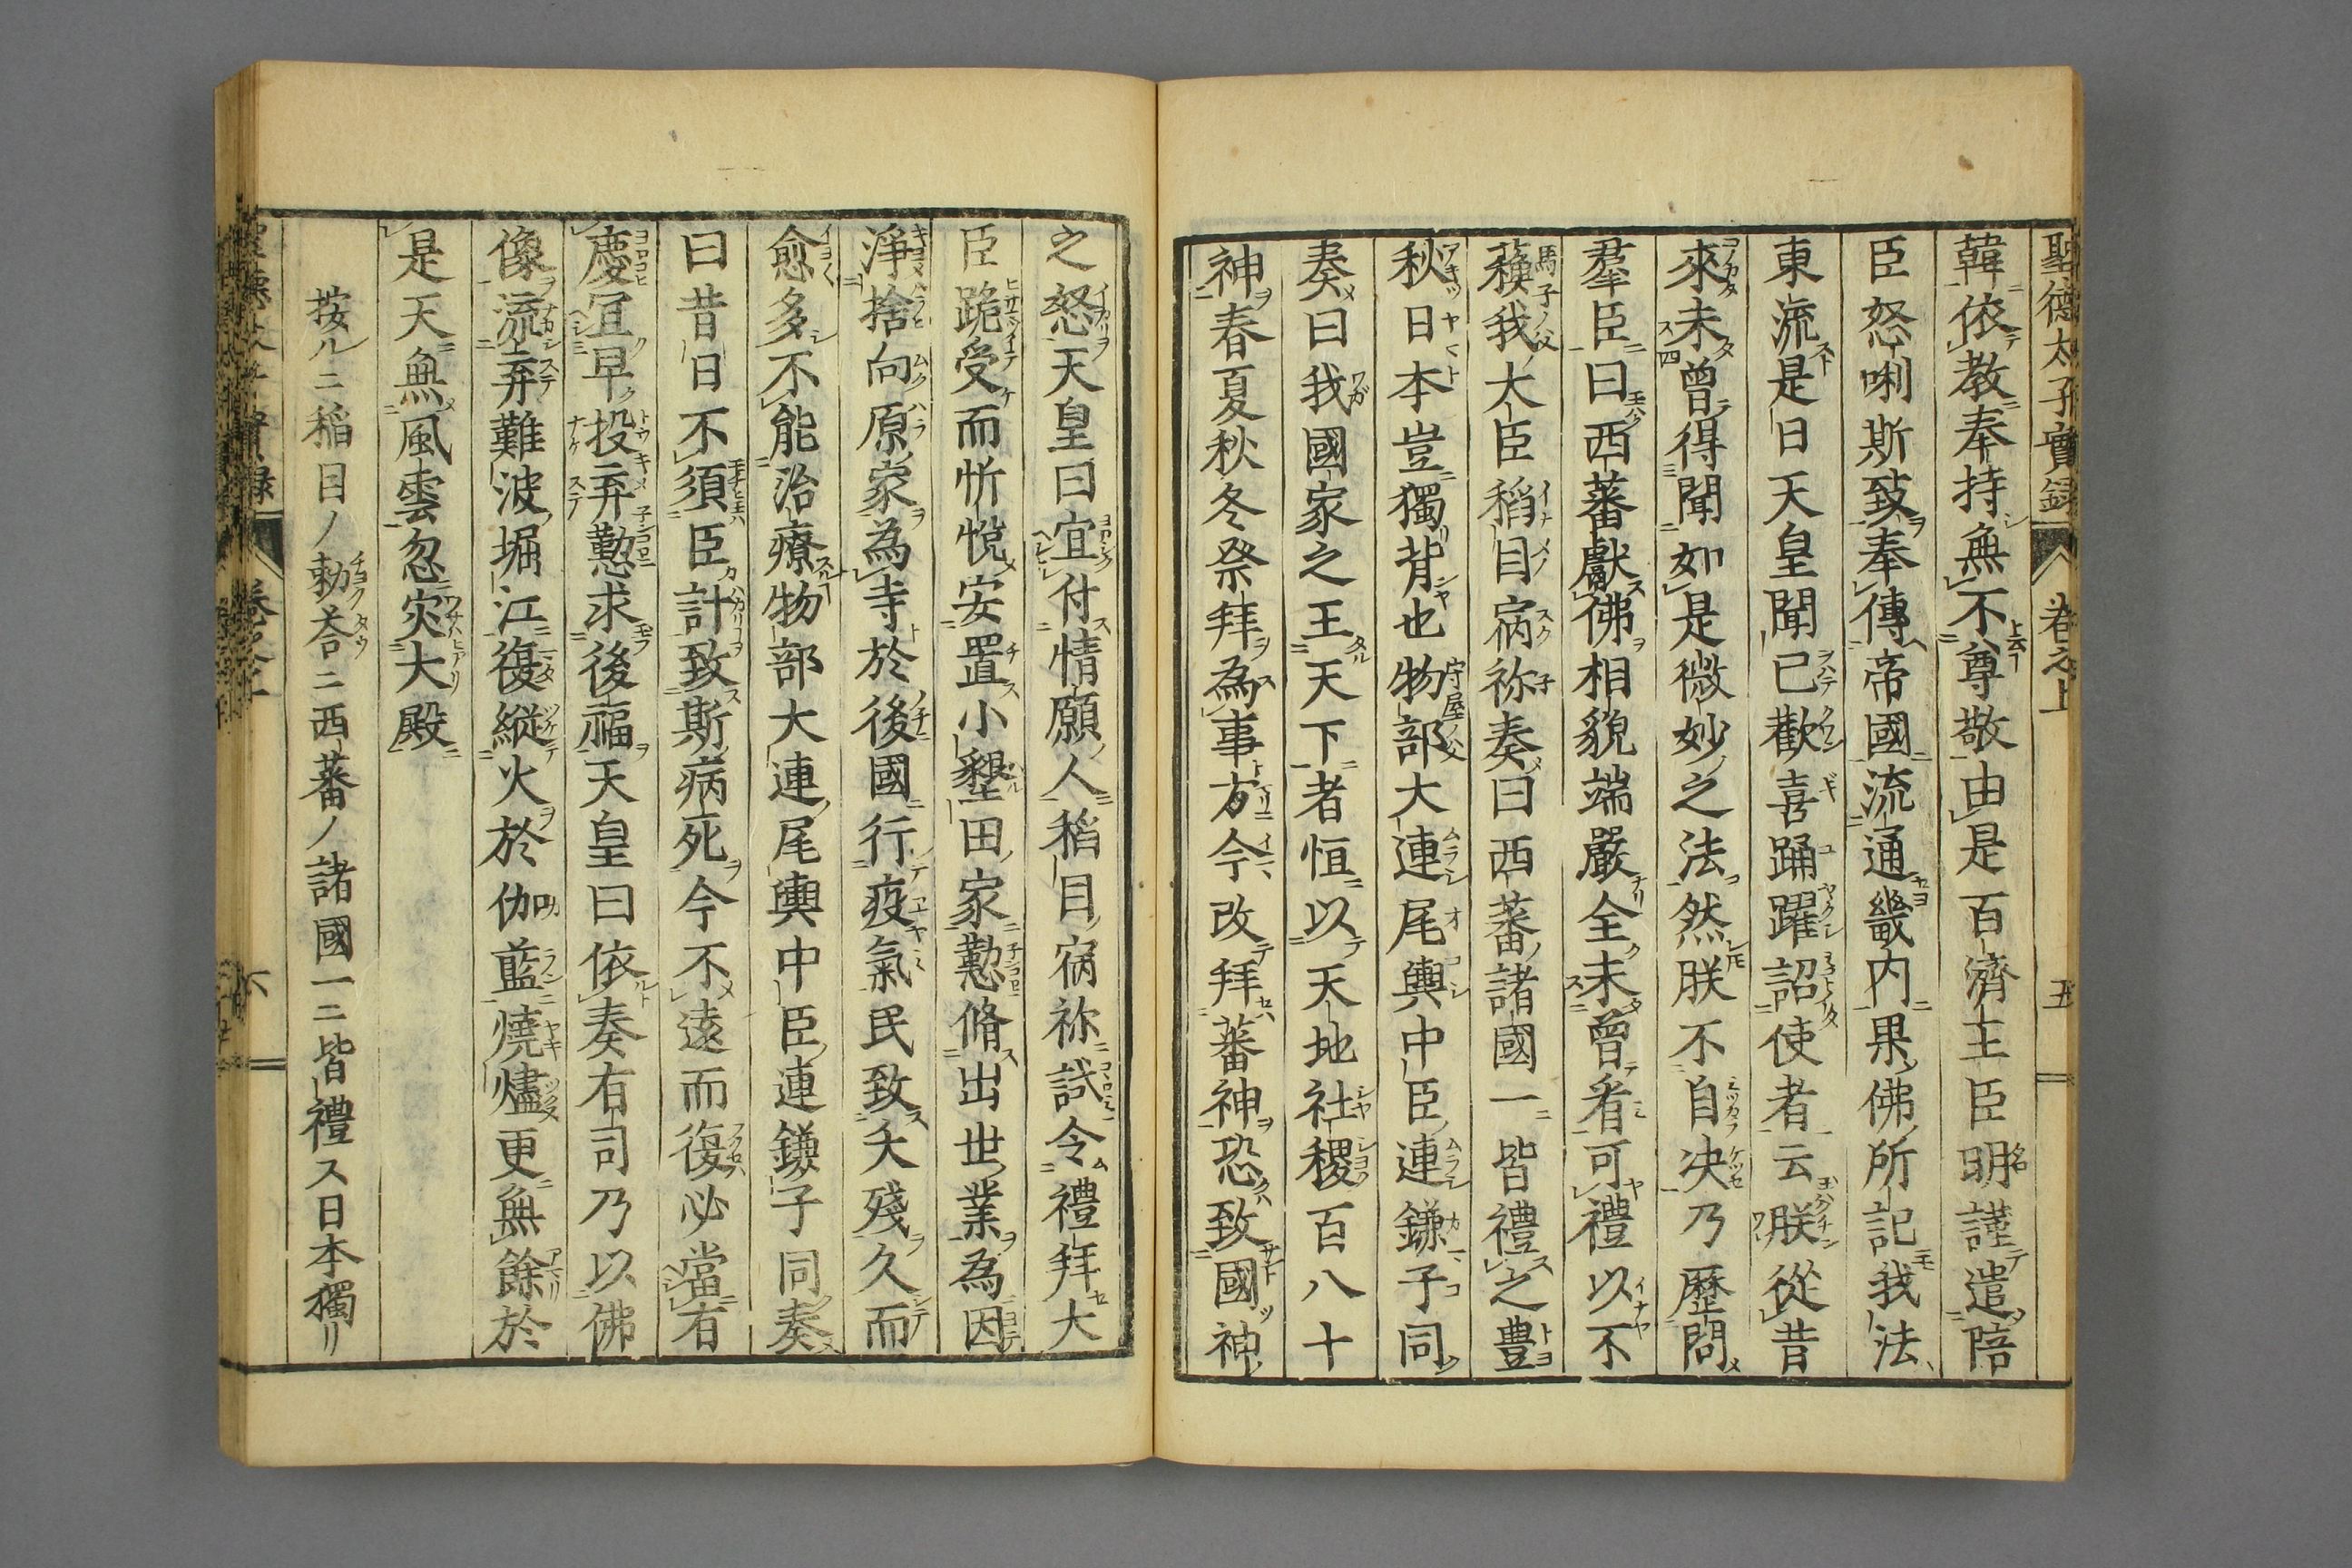 聖德太子實録 卷之上 五
韓依教奉持無不尊敬由是百濟王臣明謹遣陪
臣怒唎斯致奉傳帝國流通畿内果佛所記我法
東流是日天皇聞已歡喜踊躍詔使者云朕從昔
來未曾得聞如是微妙之法然朕不自决乃歷問
羣臣曰西蕃獻佛相貌端嚴全未曾看可禮以不
蘓我大臣稻目宿祢奏曰西蕃諸國一皆禮之豊
秋日本豈獨背也物部大連尾輿中臣連鎌子同
奏曰我國家之王天下者恒以天地社稷百八十
神春夏秋冬祭拜為事方今改拜蕃神恐致國神
之怒天皇曰宜付情願人稻目宿祢試令禮拜大
臣跪受而忻悅安置小墾田家懃脩出世業為因
淨捨向原家為寺於後國行疫氣民致夭殘久而
愈多不能治療物部大連尾輿中臣連鎌子同奏
曰昔日不須臣計致斯病死今不遠而復必當有
慶宜早投弃懃求後福天皇曰依奏有司乃以佛
像流弃難波堀江復縱火於伽藍燒燼更無餘於
是天無風雲忽灾大殿
按ルニ稲目ノ勅答ニ西蕃ノ諸國一ニ皆禮ス日本獨リ